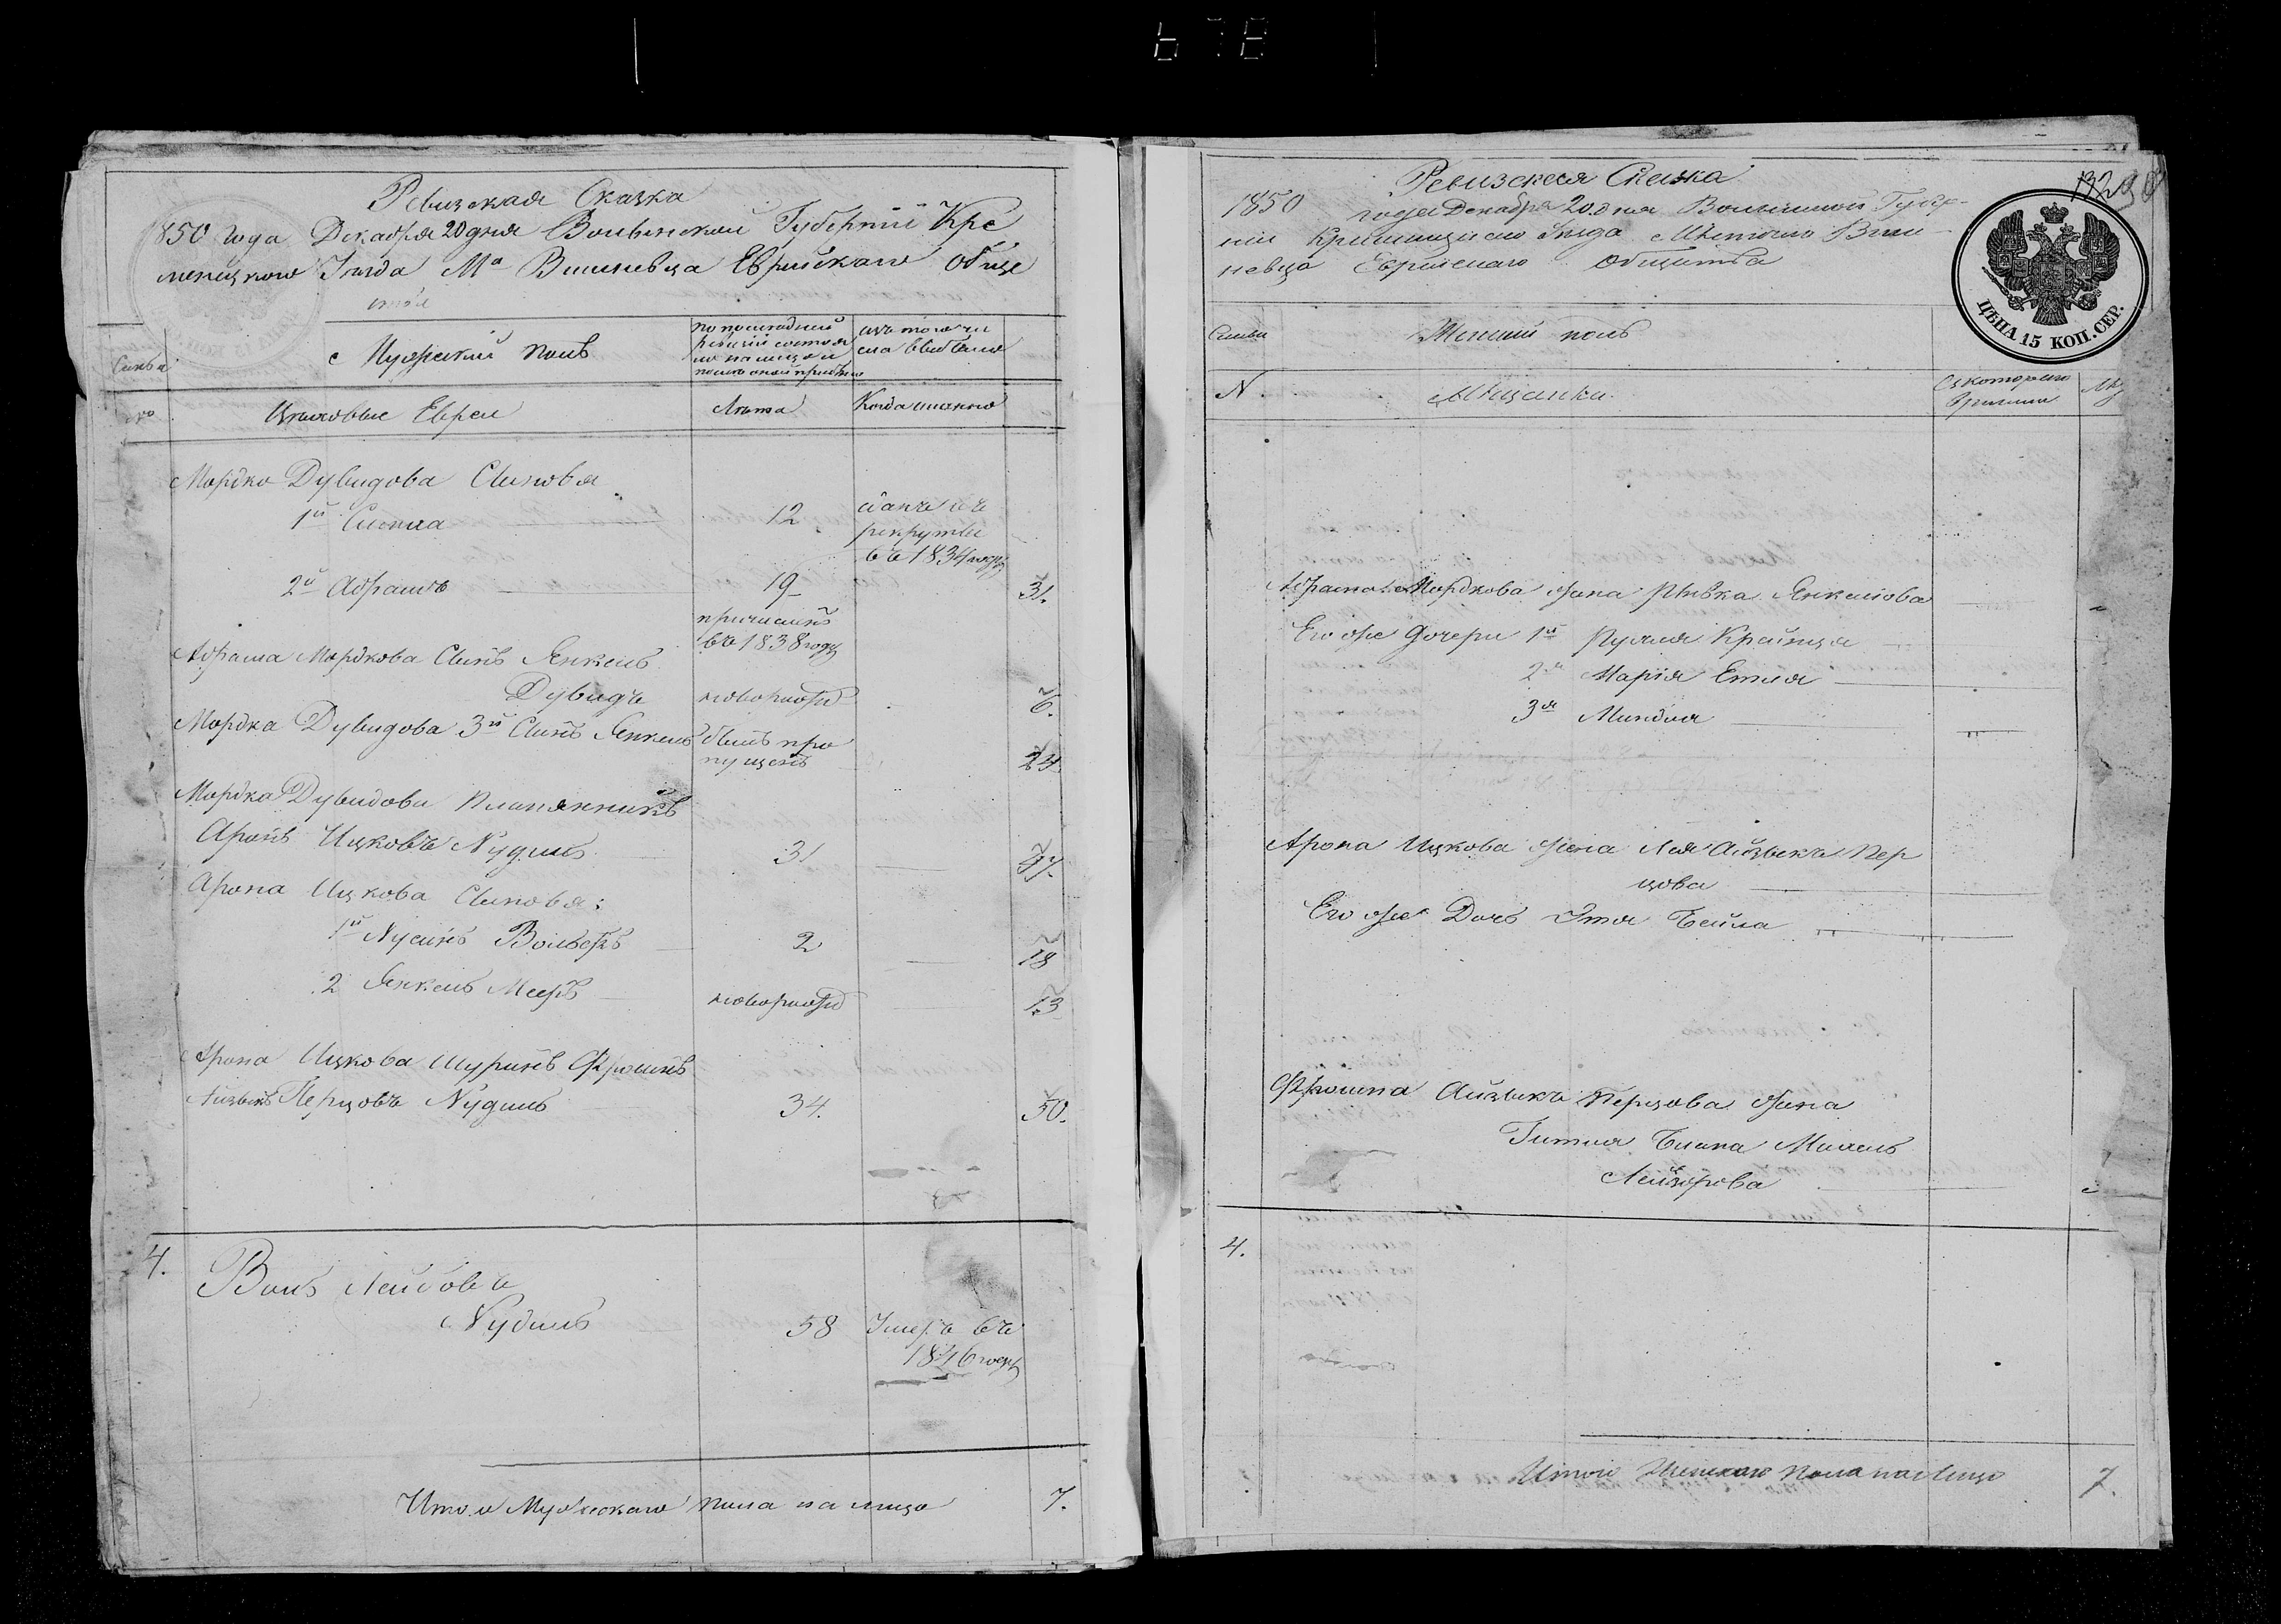 Ревизская Сказка
1850 года Декабря 20 дня Волынской Губернии Кре
менецкого Уезда Ма Вишневца Еврейскаго обще
ства
Семьи
Мужеский полъ
по последней
ревизии состоя
ло на лице и
после оной прибыло
изъ того чи
сла выбыло
№
Цеховые Евреи
Лета
Когда именно
Мордко Дувидова Сыновья
1й
12
сданъ въ
рекруты
въ 1834 году
2й Абрамъ
19
31.
причисленъ
въ 1838 году
Абрама Мордкова Сынъ Янкель
Дувидъ
новорожд
6.
Мордка Дувидова 3й Сынъ Янкель
былъ про
пущенъ
24.
Мордка Дувидова Племянникъ
Аронъ Ицковъ Нудель
31
47.
Арона Ицкова Сыновья:
1й Нусинъ Вольфъ
2
18
2 Янкель Мееръ
новорожд
13
Арона Ицкова Шуринъ Фроимъ
Айзыкъ Перцовъ Нудель
34.
50.
4.
Воль Лейбовъ
Нудель
58
Умеръ въ
1846 году
Итого Мужескаго пола на лице
7.
Ревизская Сказка
1850 года Декабря 20 дня Волынской Губер-
нии Кременецкаго Уезда Местечко Виш-
невца Еврейскаго общества
ЦѢНА 15 КОП. СЕР.
Семьи
Женский полъ
N.
Мещанки.
Съ котораго
времени
Абрама Мордкова жена Ривка Янкелова
Его же Дочери 1я Рухля Крейнця
2я Марія Етля
3я Миндля
Арона Ицкова жена Лея Айзыкъ Пер
цова
Его же Дочь Этя Бейла
Фроима Айзыкъ Перцова жена
Гитля Михель
Лейзорова
4.
Итого Женскаго пола на лице
7.